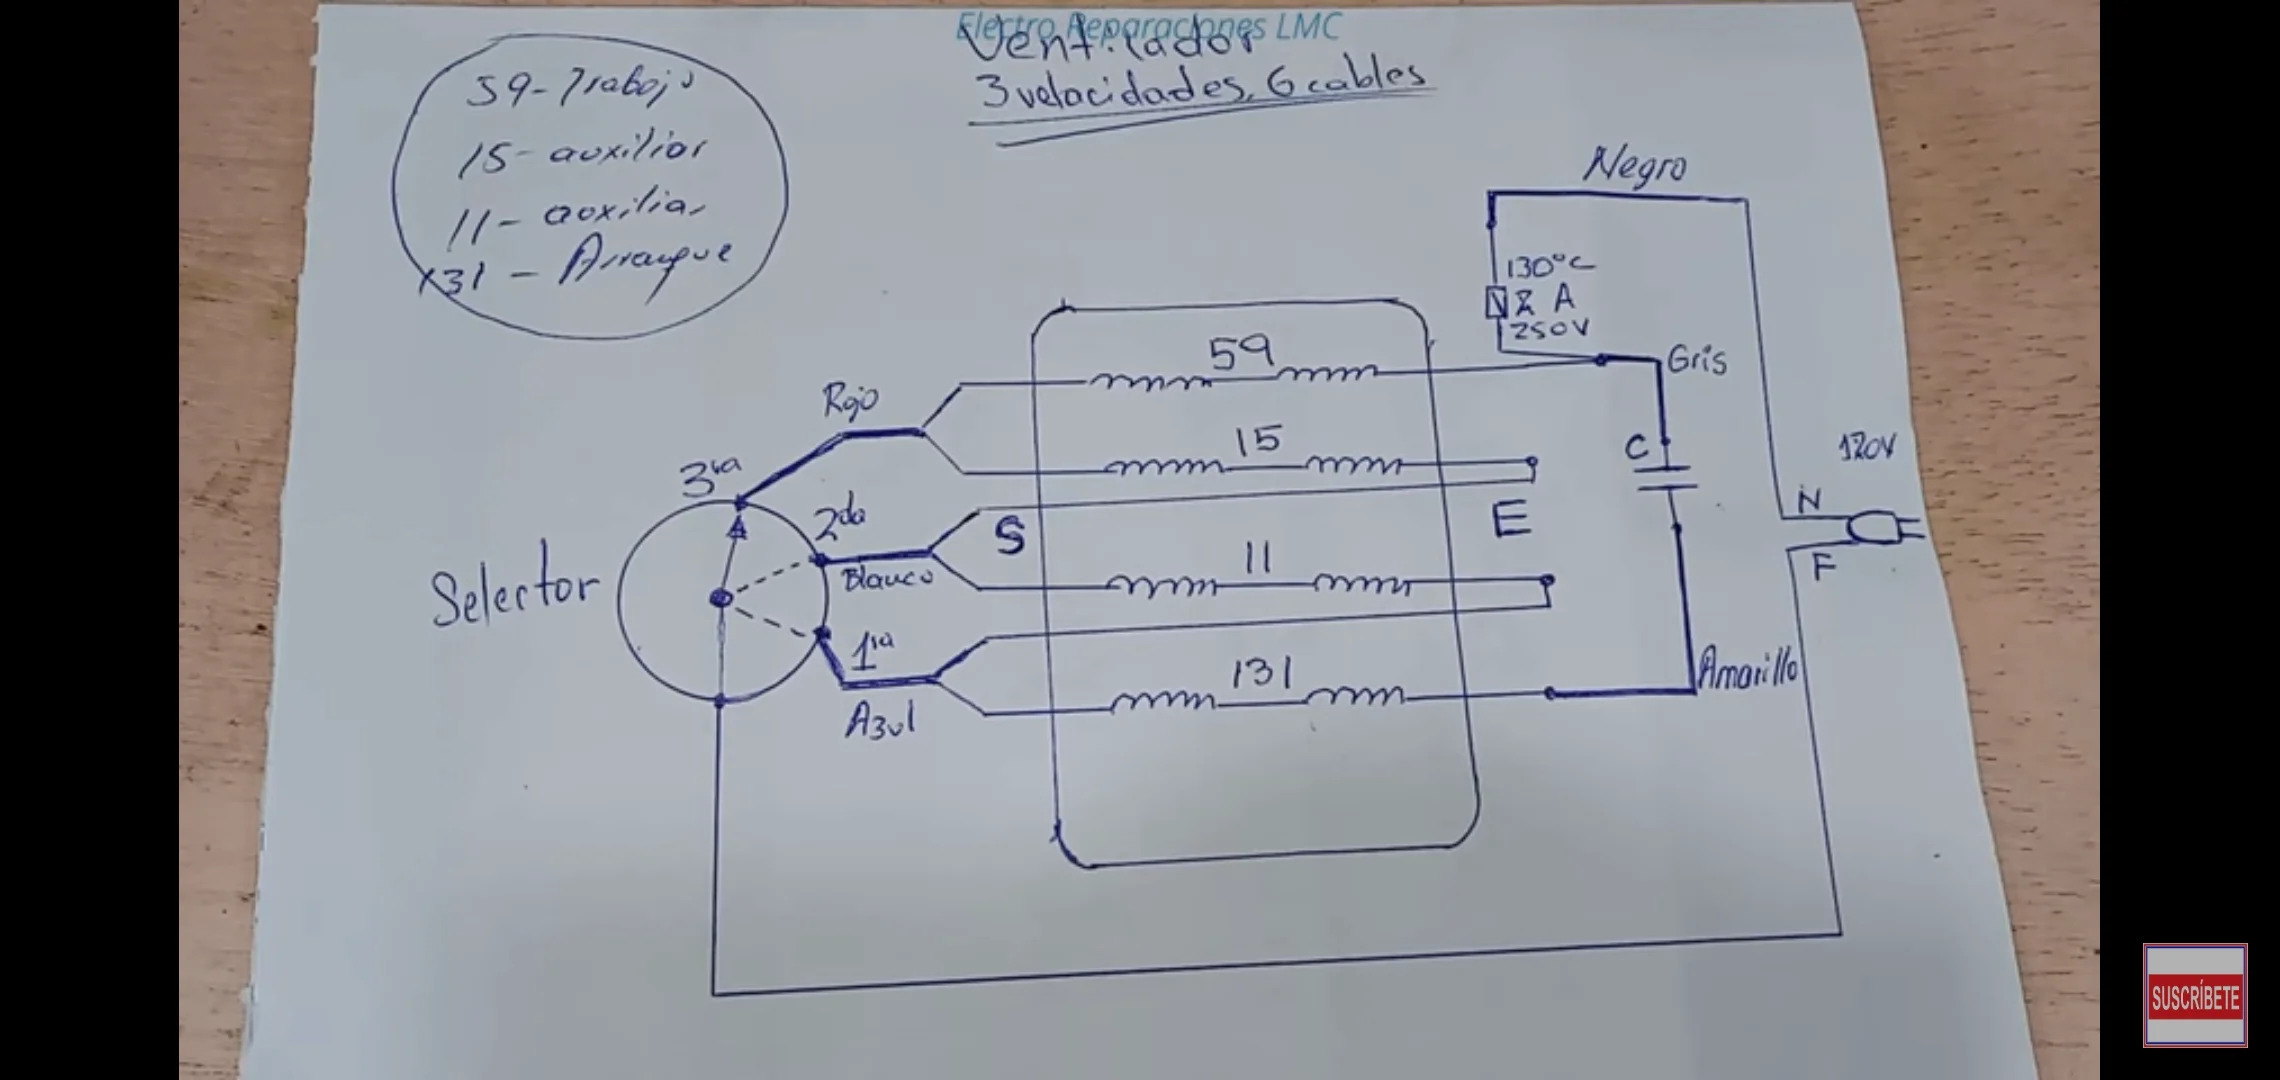 Electro Reparaciones LMC
Ventilador
3 velocidades, 6 cables
59 - Trabajo
15 - auxiliar
11 - auxiliar
131 - Arranque
Negro
130°C
2 A
250V
Gris
59
Rojo
15
C
120V
3ra
2da
S
E
N
F
Blanco
11
Selector
1ra
131
Amarillo
Azul
SUSCRÍBETE